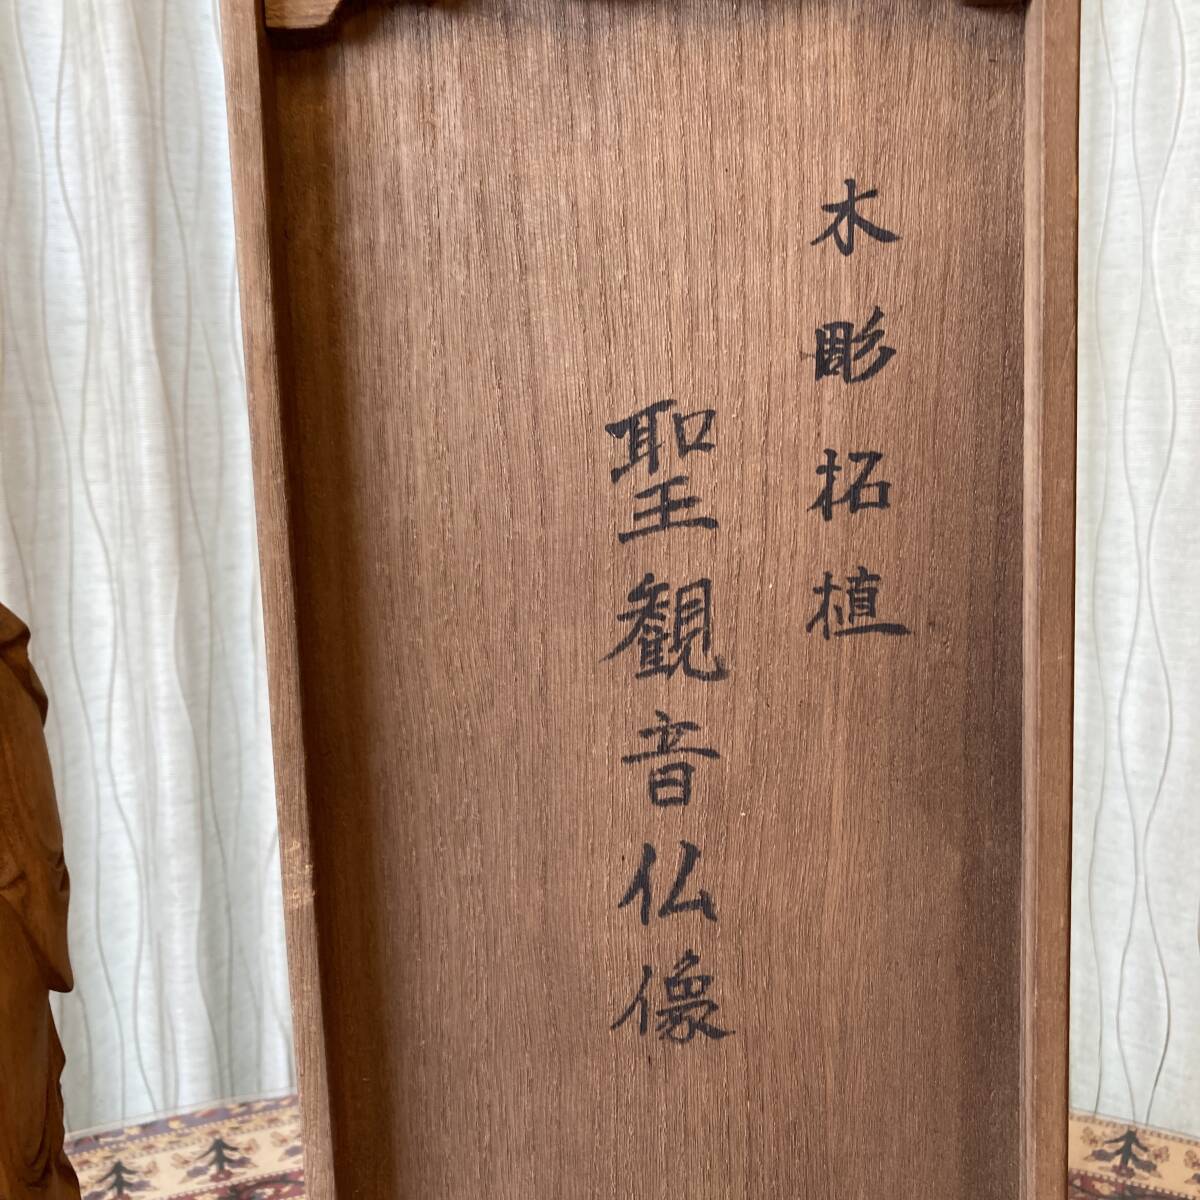 木彫拓植
聖観音仏像